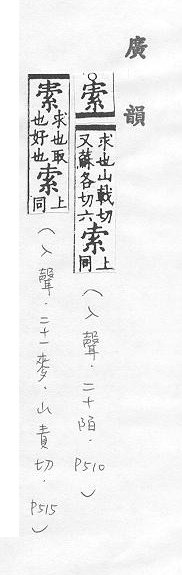 廣韻
○𡩡求也山戟切又蘇各切六索上同（入聲．二十陌．P510）
𡩡求也取也好也索上同（入聲．二十一麥．山責切．P515）